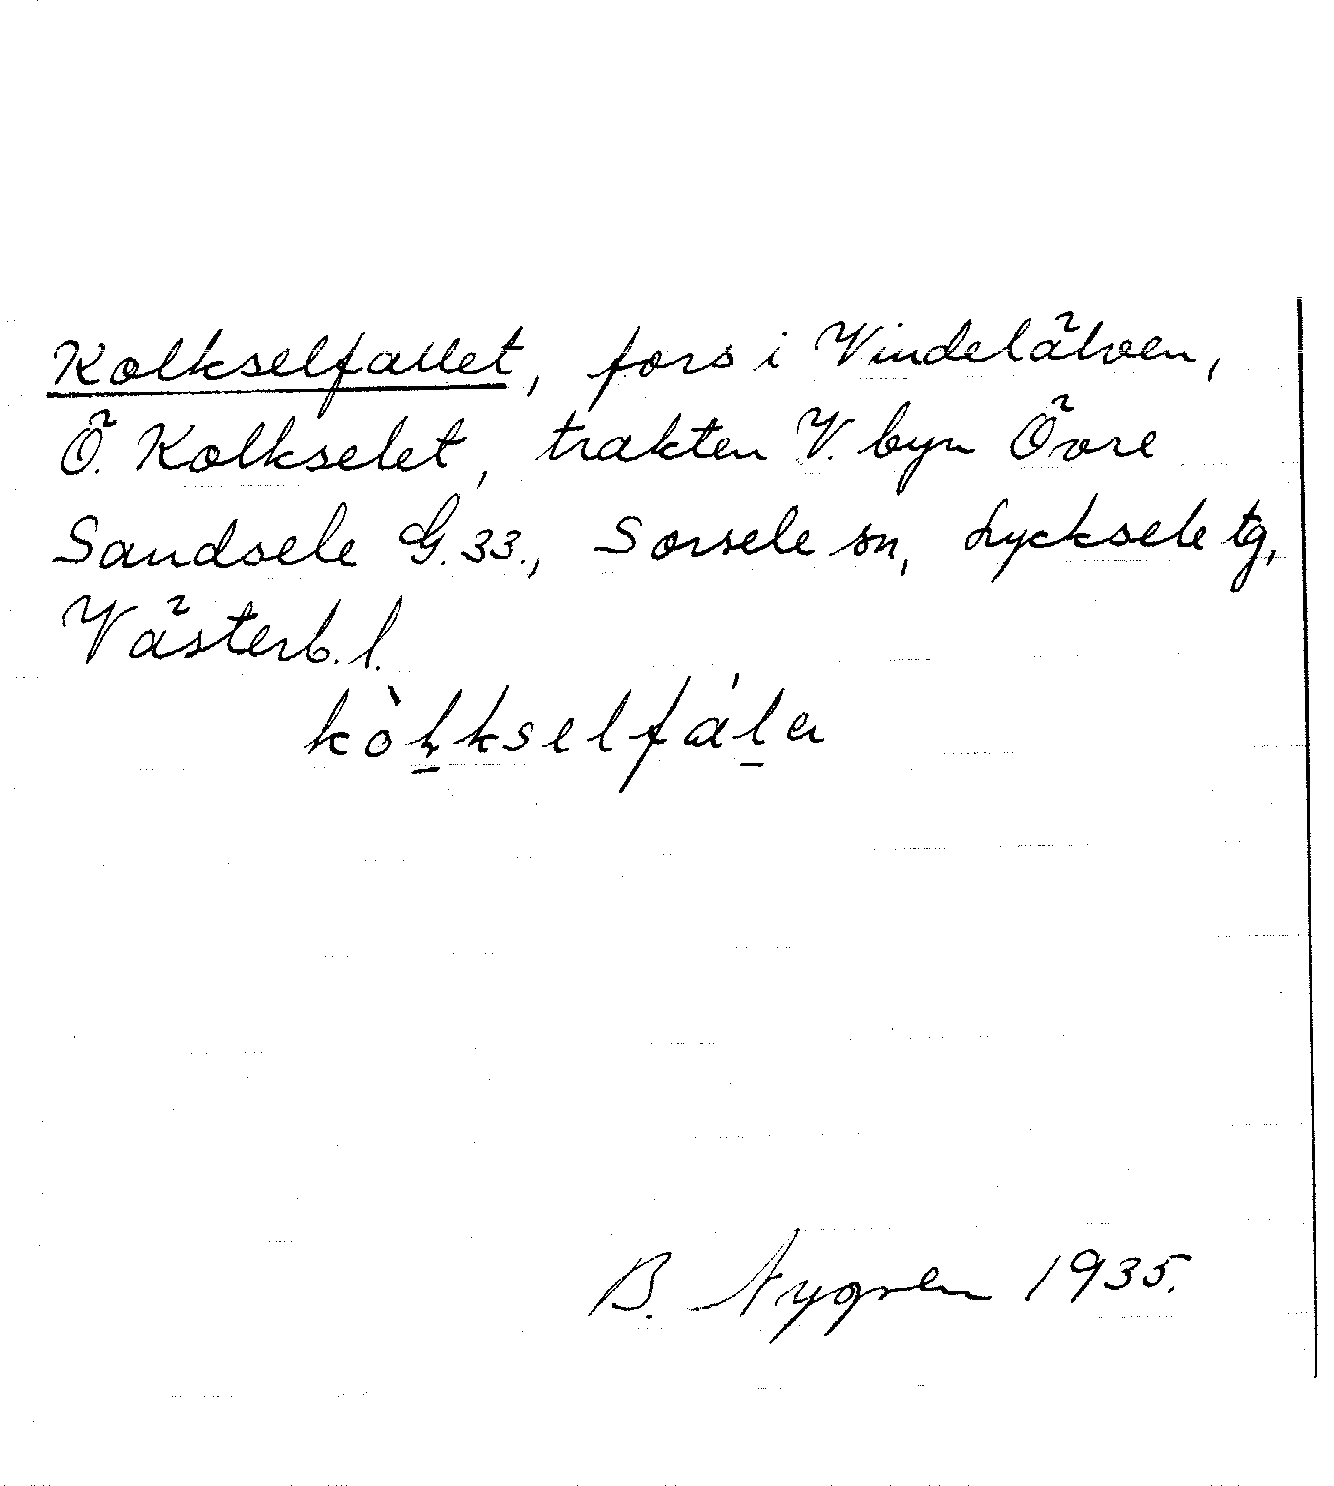 Kolkselfallet, fors i Vindelälven,
Ö. Kolkselet, trakten V. byn Övre
Sandsele G. 33., Sorsele sn, Lycksele tg,
Västerb. l.
B. Nygren 1935.